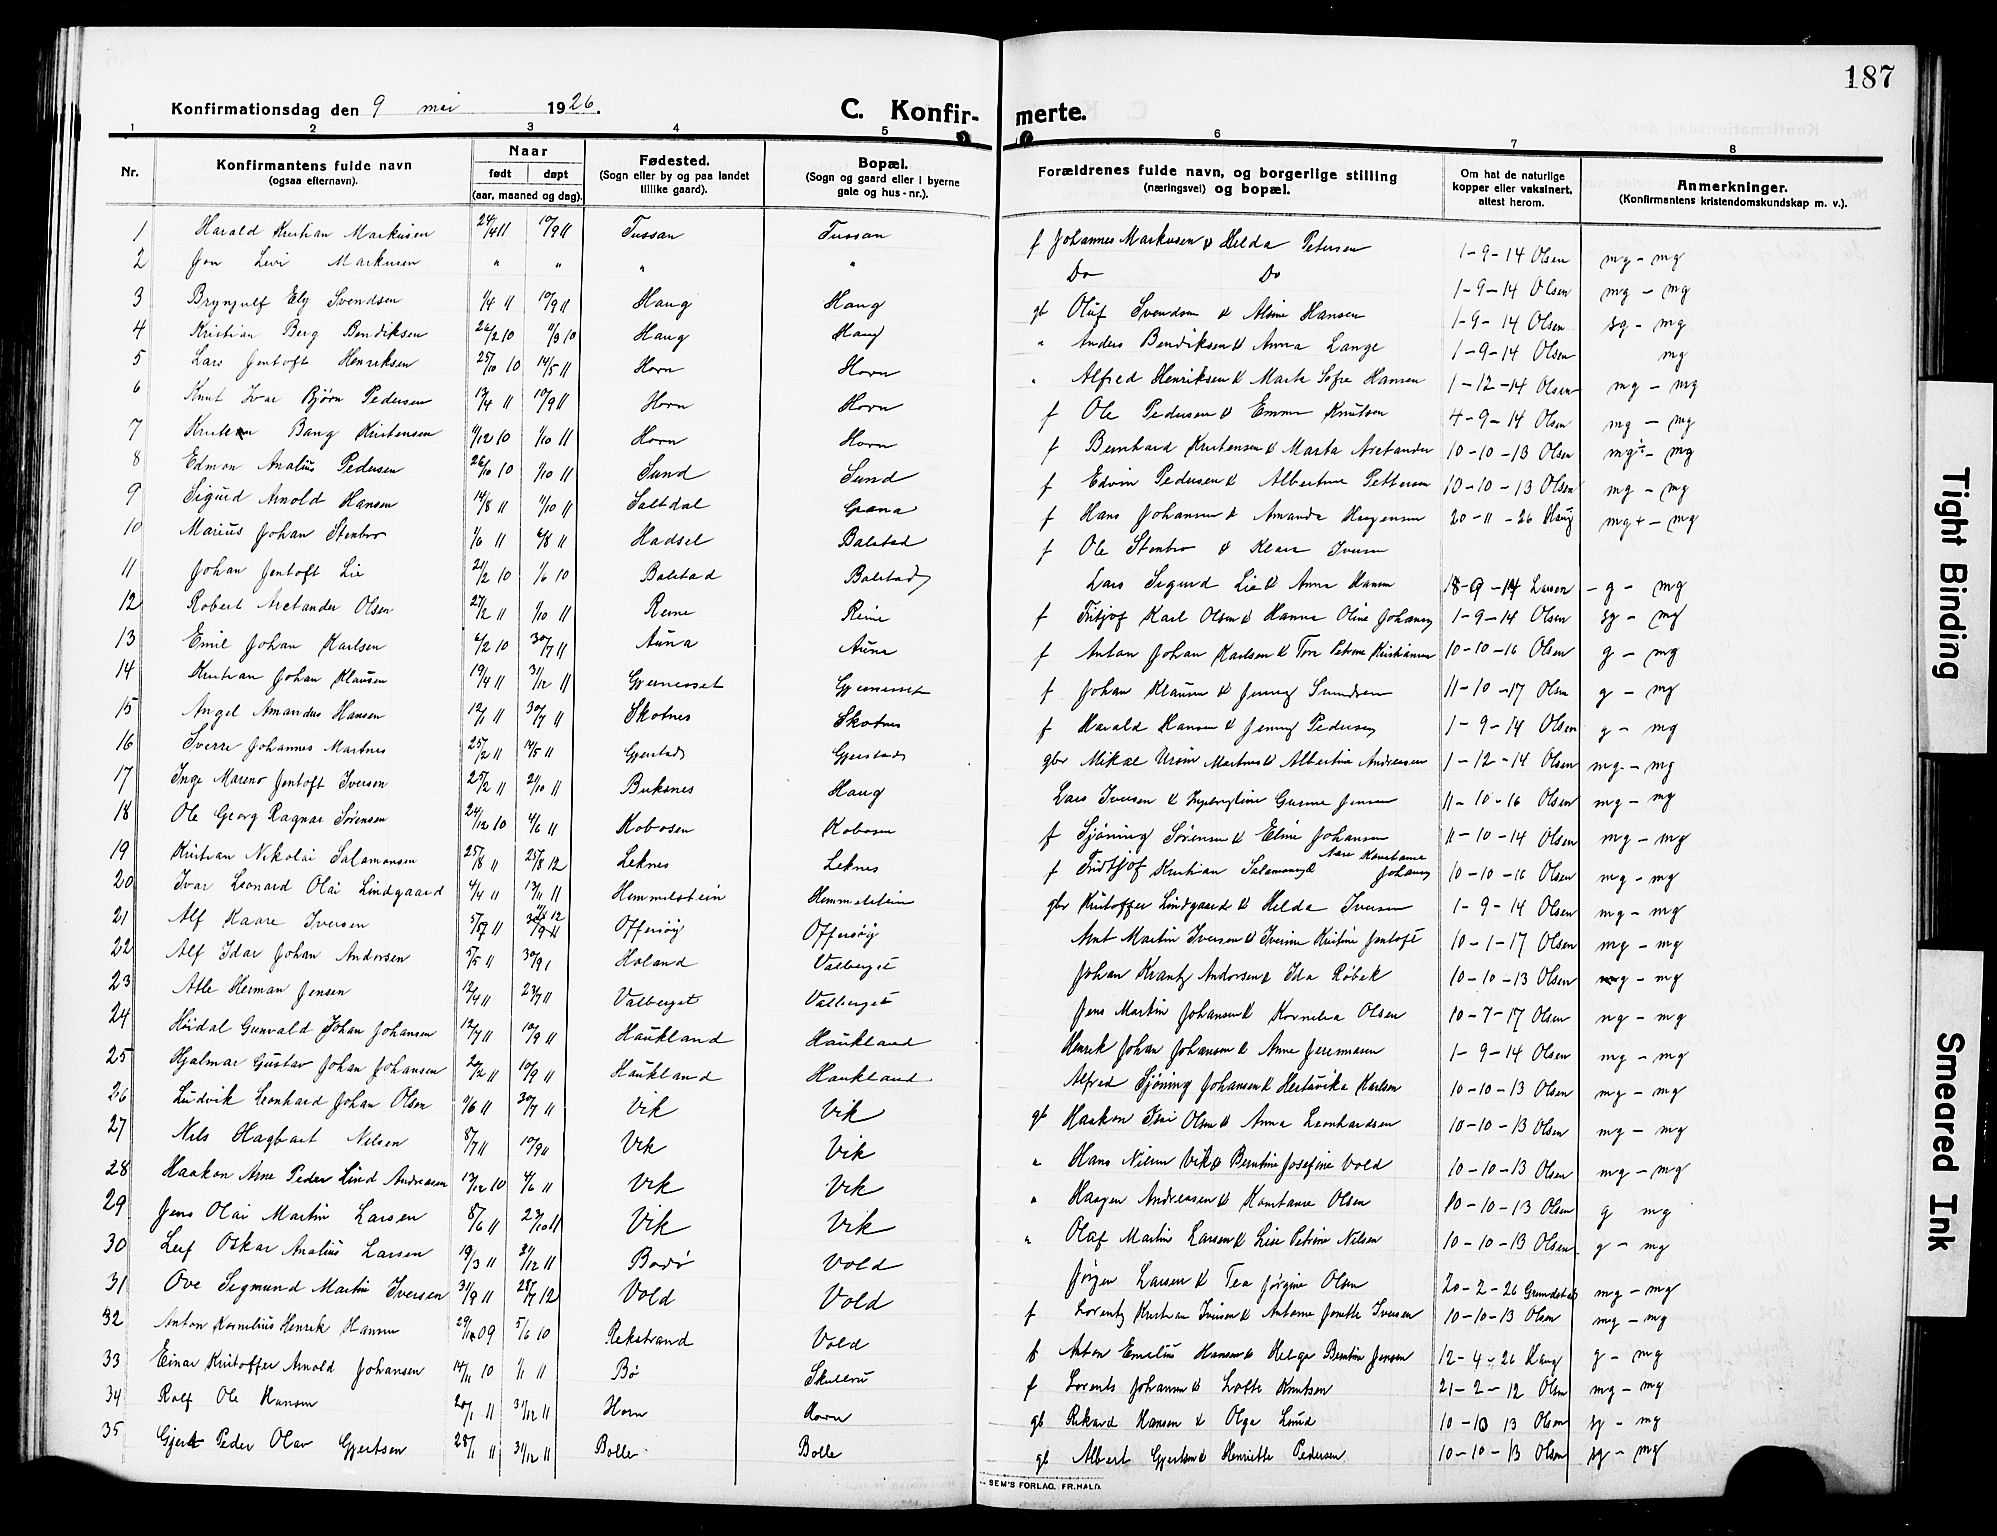 187
Konfirmationsdag den 9 mai 1926. C. Konfir- merte.
1 2 3 4 5 6 7 8
Nr. Konfirmantens fulde navn (ogsaa efternavn). Naar født døpt (aar, maaned og dag). Fødested. (Sogn eller by og paa landet tillike gaard). Bopæl. (Sogn og gaard eller i byerne gate og hus-nr.). Forældrenes fulde navn, og borgerlige stilling (næringsvei) og bopæl. Om hat de naturlige kopper eller vaksinert, attest herom. Anmerkninger. (Konfirmantens kristendomskundskap m. v.).
1 Harald Kristian Markusen 24/4 11 10/9 11 Tussan Tussan f Johannes Markusen & Helda Petersen 1-9-14 Olsen mg - mg
2 Jon Levi Markusen " " " " Do Do 1-9-14 Olsen mg - mg
3 Brynjulf Ely Svendsen 1/4 11 10/9 11 Haug Haug gb Oluf Svendsen & Alvine Hansen 1-9-14 Olsen sg - mg
4 Kristian Berg Bendiksen 26/2 10 11/9 10 Haug Haug " Anders Bendiksen & Anna Lange 1-9-14 Olsen mg
5 Lars Jentoft Henriksen 25/10 10 14/5 11 Horn Horn " Alfred Henriksen & Marta Sofie Hansen 1-12-14 Olsen mg - mg
6 Knut Ivar Bjørn Pedersen 13/4 11 10/9 11 Horn Horn f Ole Pedersen & Emma Knutsen 4-9-14 Olsen mg - mg
7 Bang Kristensen 11/12 10 1/10 11 Horn Horn f Bernhard Kristensen & Marta Aretander 10-10-13 Olsen mg÷ - mg
8 Edmon Analius Pedersen 26/10 10 1/10 11 Sund Sund f Edvin Pedersen & Albertine Pettersen 10-10-13 Olsen mg - mg
9 Sigurd Arnold Hansen 14/8 11 11/10 11 Saltdal Grana f Hans Johansen & Amanda Haagensen 20-11-26 Haug mg+ - mg
10 Marius Johan Stenbro 1/6 11 6/8 11 Hadsel Balstad f Ole Stenbro & Klara Iversen
11 Johan Jentoft Lie 21/2 10 1/6 10 Balstad Balstad Lars Sigurd Lie & Anna Hansen Larsen - g - mg
12 Robert Aretander Olsen 27/2 11 1/10 11 Reine Reine f Fritjof Karl Olsen & Hanna Oline Johansen 1-9-14 Olsen sg - mg
13 Emil Johan Karlsen 6/2 10 30/7 11 Auna Auna f Anton Johan Karlsen & Tora Petrine Kristiansen 10-10-16 Olsen g - mg
14 Kristian Johan Klausen 19/4 11 31/12 11 Gjerneset Gjerneset f Johan Klausen & Jenny Svendsen 11-10-17 Olsen g - mg
15 Angel Amandus Hansen 12/1 11 30/7 11 Skotnes Skotnes f Harald Hansen & Jenny Pedersen 1-9-14 Olsen g - mg
16 Sverre Johannes Martnes 25/2 11 14/5 11 Gjerstad Gjerstad gbr Mikal Ursin Martnes & Albertine Andreassen 1-12-14 Olsen mg - mg
17 Inge Mareno Jentoft Iversen 25/2 11 2/10 11 Buksnes Haug Lars Iversen & Gurine Jensen 11-10-16 Olsen mg - mg
18 Ole Georg Ragnar Sørensen 24/12 10 4/6 11 Kobosen Kobosen f Sjøning Sørensen & Eline Johansen 11-10-14 Olsen mg - mg
19 Kristian Nikolai Salamonsen 25/8 11 25/8 12 Leknes Leknes f Fridtjof Kristian Salamonsen & Aase Konstanse Johansen 10-10-16 Olsen mg - mg
20 Ivar Leonard Olai Lindgaard 4/4 11 13/11 11 Hemmelstein Hemmelstein gbr Kristoffer Lindgaard & Helda Iversen 1-9-14 Olsen mg - mg
21 Alf Kaare Iversen Offersøy Offersøy Arnt Martin Iversen & Iverine Kristine Jentoft 10-1-17 Olsen mg - mg
22 Alf Idar Johan Andorsen 5/5 11 Holand Valberget Johan Krantz Andorsen & Ida Røbek 10-10-13 Olsen mg - mg
23 Atle Herman Jensen 12/4 11 23/7 11 Valberget Valberget Jens Martin Johansen & Kornelia Olsen 10-7-17 Olsen ng - mg
24 Høidal Gunvald Johan Johansen 12/7 11 10/9 11 Haukland Haukland Henrik Johan Johansen & Anne Jeremiasen 1-9-14 Olsen mg - mg
25 Hjalmar Gustav Johan Johansen 20/2 11 10/9 11 Haukland Haukland Alfred Sjøning Johansen & Hertevika Karlsen 10-10-13 Olsen mg - mg
26 Ludvik Leonhard Johan Olsen 11/6 11 30/7 11 Vik Vik gb Haakon Isai Olsen & Anna Leonhardsen 10-10-13 Olsen mg - mg
27 Nils Hagbart Nilsen 8/7 11 10/9 11 Vik Vik " Hans Nilsen Vik & Berntine Josefine Vold 10-10-13 Olsen mg - mg
28 Haakon Arne Peder Lind Andreasen 13/12 10 4/6 11 Vik Vik " Haagen Andreassen & Konstanse Olsen 10-10-13 Olsen g mg
29 Jens Olai Martin Larsen 8/6 11 27/10 11 Vik Vik " Olaf Martin Larsen & Lise Petrine Nilsen 10-10-13 Olsen g - mg
30 Leif Oskar Analius Larsen 19/3 11 21/12 11 Bodø Vold Jørgen Larsen & Tea Jørgine Olsen 20-2-26 Grundstad mg - mg
31 Ove Sigmund Martin Iversen 31/9 11 28/7 12 Vold Vold f Lorentz Kristian Iversen & Antone Jonette Iversen 10-10-13 Olsen mg - mg
32 Anton Kornelius Henrik Hansen 09 5/6 10 Rekstrand Vold f Anton Emelius Hansen & Helga Berntine Jensen 12-4-26 Haug g - mg
33 Einar Kristoffer Arnold Johansen 14/11 10 1/1 11 Bø Skulbru f Lorents Johansen & Lotte Knutsen 21-2-12 Olsen mg - mg
34 Rolf Ole Hansen 20/1 11 31/12 11 Horn Horn gb Rikard Hansen & Olga Lund 10-10 13 Olsen sg - mg
35 Gjert Peder Olav Gjertsen 28/1 11 31/12 11 Bolle Bolle gb Albert Gjertsen & Henriette Pedersen 10-10-13 Olsen sg - mg
SEM'S FORLAG, FR.HALD.
Tight Binding
Smeared Ink